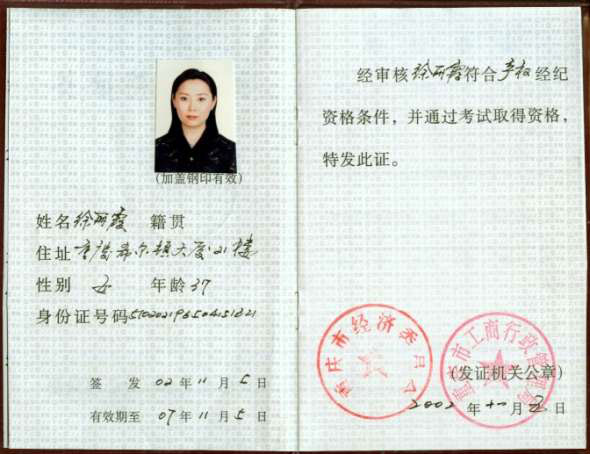 (加盖钢印有效)
姓名 徐丽霞 籍贯
住址 重庆希尔顿大厦 楼
性别 女 年龄 37
身份证号码
签发 02年11月5日
有效期至 07年11月5日
经审核 徐丽霞 符合 产权 经纪
资格条件，并通过考试取得资格，
特发此证。
重庆市经济委员会
重庆市工商行政管理局
(发证机关公章)
2002年十一月五日